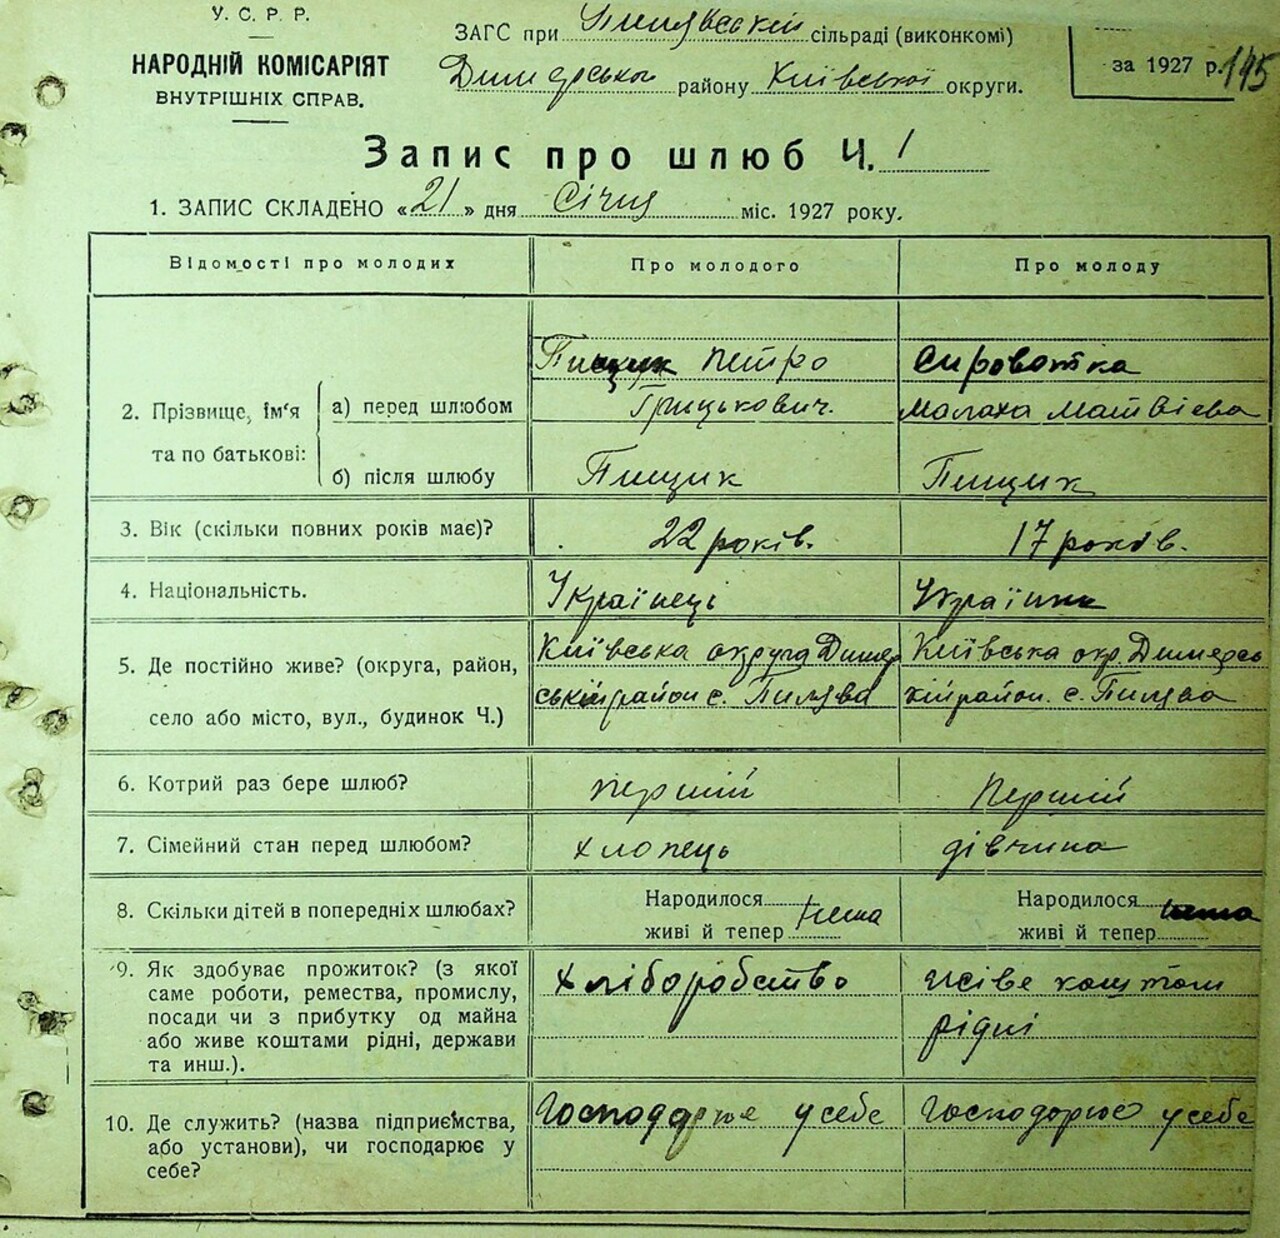 У. С. Р. Р.
НАРОДНІЙ КОМІСАРІЯТ
ВНУТРІШНІХ СПРАВ.
ЗАГС при Пилявській сільраді (виконкомі)
Димерського району Київської округи.
за 1927 р. 145
Запис про шлюб Ч. 1
1. ЗАПИС СКЛАДЕНО «21» дня Січня міс. 1927 року.
Відомості про молодих
Про молодого
Про молоду
2. Прізвище, ім'я
та по батькові:
а) перед шлюбом
Пищик Петро
Грицькович.
Сировотка
Малаха Матвієва
б) після шлюбу
Пищик
Пищик
3. Вік (скільки повних років має)?
22 років.
17 років.
4. Національність.
Українець
Українка
5. Де постійно живе? (округа, район,
село або місто, вул., будинок Ч.)
Київська округа Димер
ський район с. Пилява
Київська окр. Димерсь
кій район. с. Пилява
6. Котрий раз бере шлюб?
першій
Першій
7. Сімейний стан перед шлюбом?
хлопець
дівчина
8. Скільки дітей в попередніх шлюбах?
Народилося
живі й тепер нема
Народилося нема
живі й тепер
9. Як здобуває прожиток? (з якої
саме роботи, ремества, промислу,
посади чи з прибутку од майна
або живе коштами рідні, держави
та инш.).
хліборобство
коштом
рідні
10. Де служить? (назва підприємства,
або установи), чи господарює у
себе?
Господарює у себе
Господорює у себе